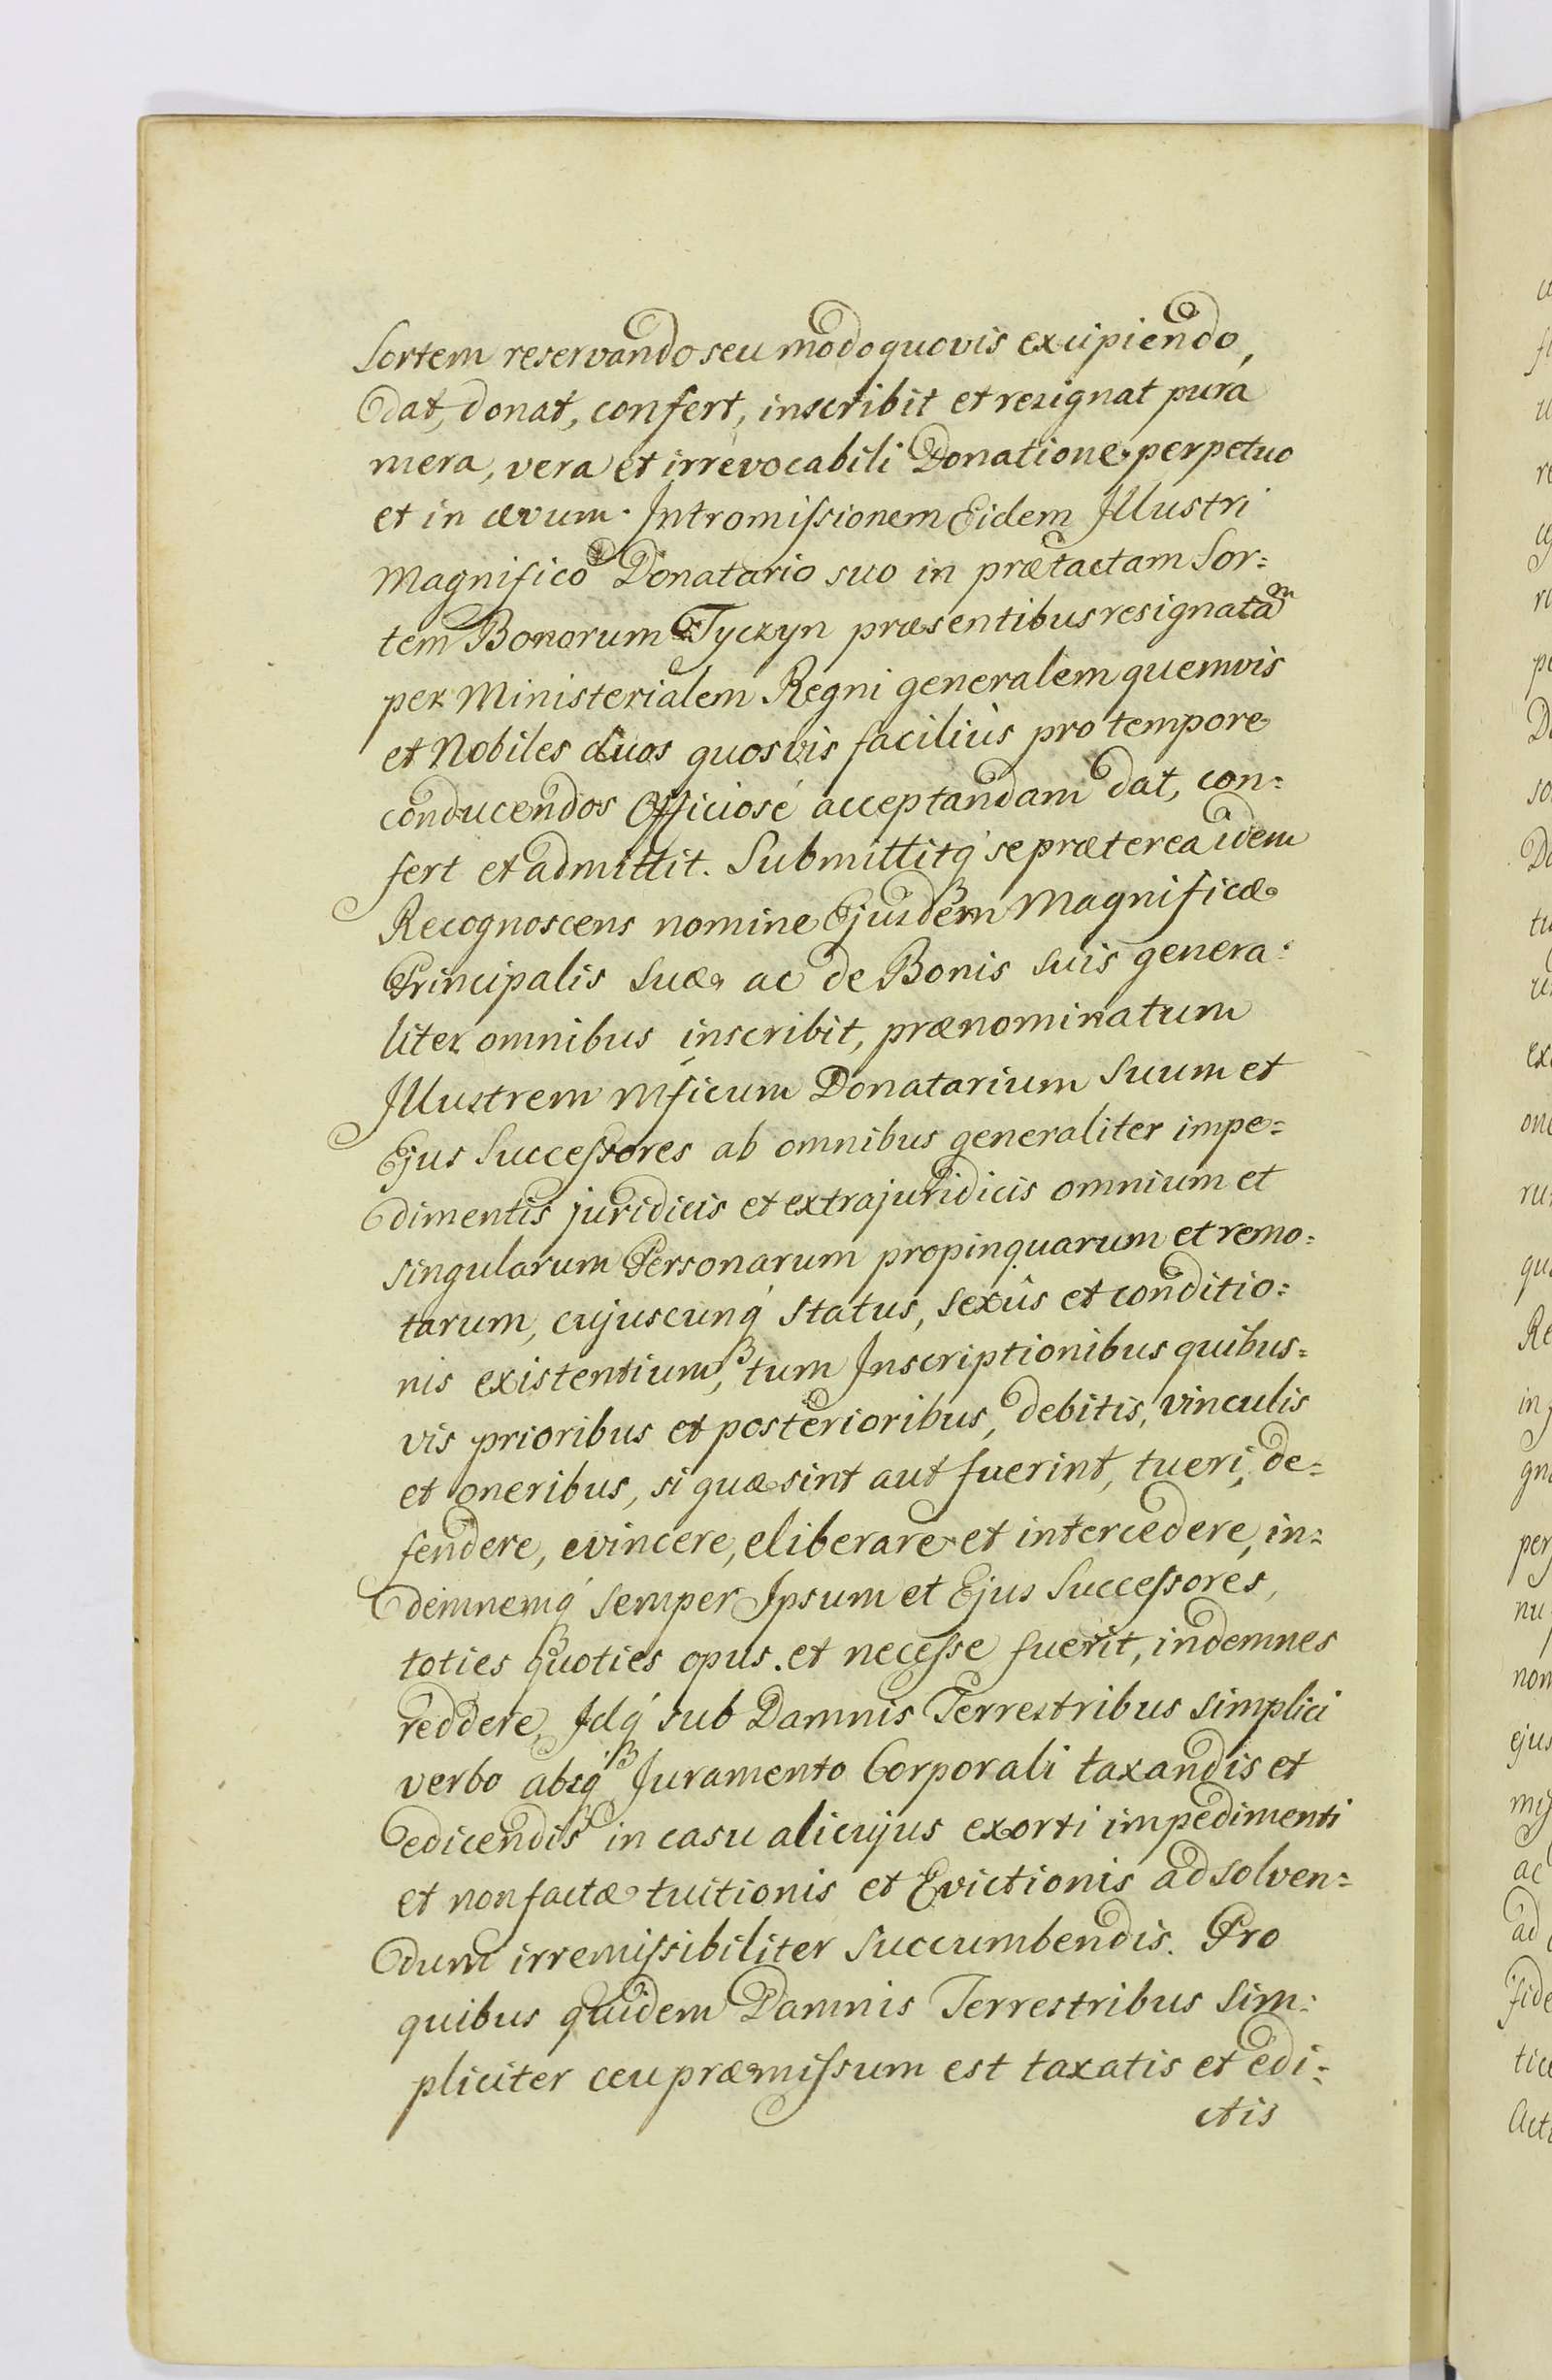 Sortem reservando seu modo quovis excipiendo,
dat, donat, confert, inscribit et resignat pura
mera, vera et irrevocabili Donatione perpetuo
et in ævum. Intromissionem Eidem Illustri
Magnifico Donatario suo in prætactam Sor=
tem Bonorum Tyczyn præsentibus resignatam
per Ministerialem Regni generalem quemvis
et Nobiles duos quosvis faciliùs pro tempore
conducendos Officiosé acceptandam dat, con=
fert et admittit. Submittitq́ se præterea idem
Recognoscens nomine Ejusdem Magnificæ
Principalis Suæ ac de Bonis suis genera=
liter omnibus inscribit, prænominatum
Illustrem Mficum Donatarium Suum et
Ejus Successores ab omnibus generaliter impe=
dimentis juridicis et extrajuridicis omnium et
singularum Personarum propinquarum et remo=
tarum, cujuscunq́ Status, sexûs et conditio=
nis existentium, tum Inscriptionibus quibus=
vis prioribus et posterioribus, debitis, vinculis
et oneribus, si quæ sint aut fuerint, tueri, de=
fendere, evincere, eliberare et intercedere, in=
demnemq́ semper Ipsum et Ejus Successores,
toties quoties opus et necesse fuerit, indemnes
reddere, Idq́ sub Damnis Terrestribus simplici
verbo absq́ Juramento Corporali taxandis et
edicendis in casu alicujus exorti impedimenti
et non factæ tuitionis et Evictionis ad solven=
dum irremissibiliter succumbendis. Pro
quibus quidem Damnis Terrestribus sim=
pliciter ceu præmissum est taxatis et edi=
ctis